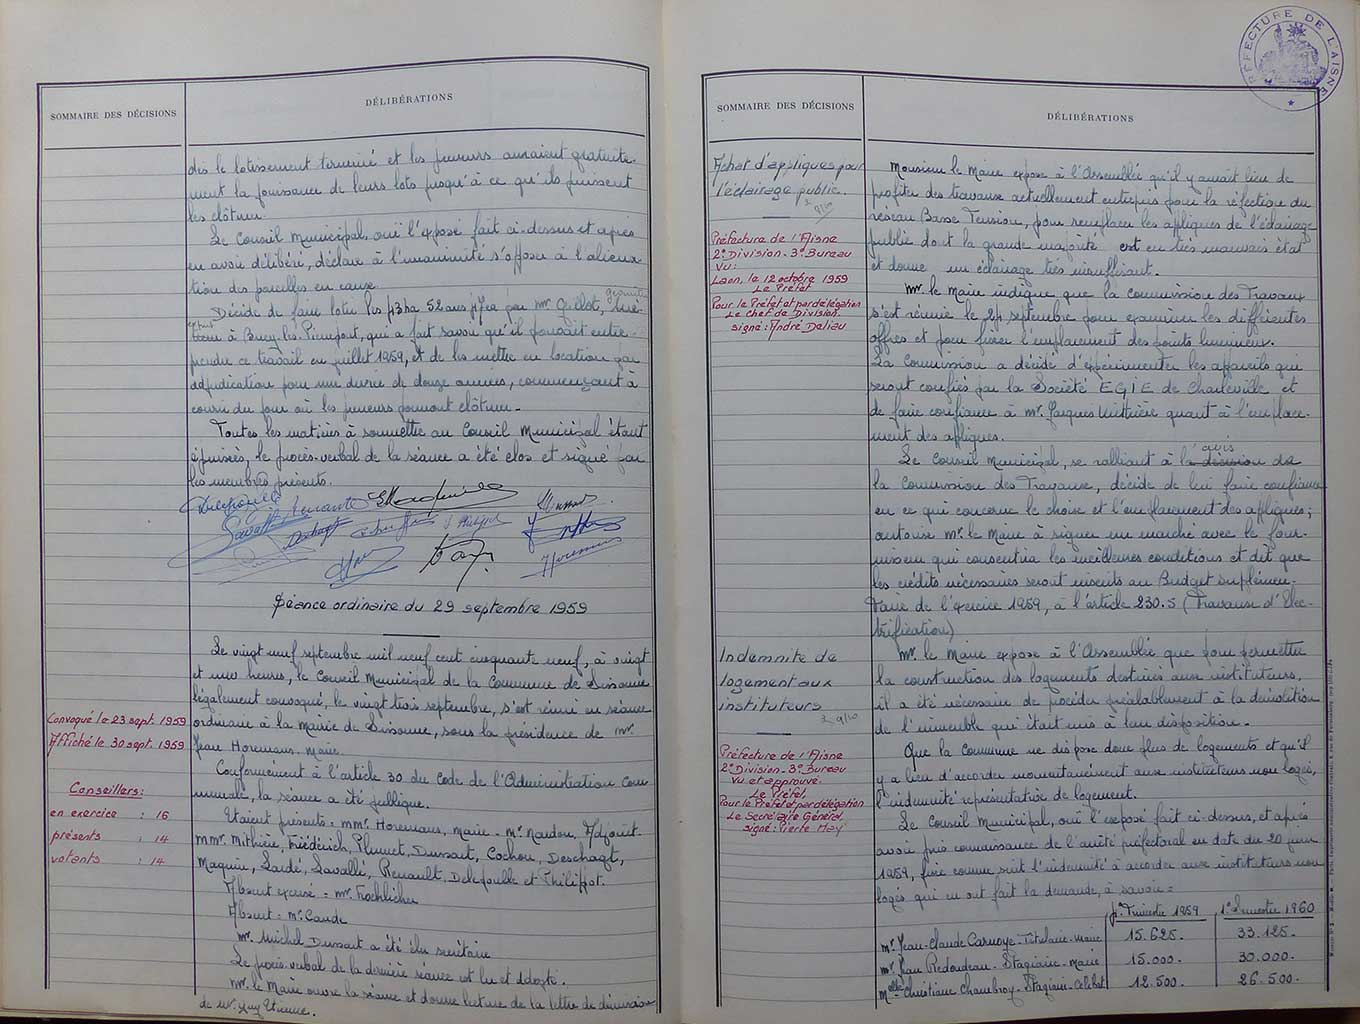 SOMMAIRE DES DÉCISIONS
DÉLIBÉRATIONS
dès le lotissement terminé et les preneurs auraient gratuite-
ment la jouissance de leurs lots jusqu'à ce qu'ils puissent
les clôturer.
Le Conseil Municipal, ouï l'exposé fait ci-dessus et après
en avoir délibéré, déclare à l'unanimité s'opposer à l'aliéna-
tion des parcelles en cause.
Décide de faire lotir les 43ha 52 ares par Mr Gillot, géomètre
à Bucy-les-Pierrepont, qui a fait savoir qu'il pouvait entre-
prendre ce travail en juillet 1959, et de les mettre en location par
adjudication pour une durée de douze années, commençant à
courir du jour où les preneurs pourront clôturer.
Toutes les matières à soumettre au Conseil Municipal étant
épuisées, le procès-verbal de la séance a été clos et signé par
les membres présents.
Séance ordinaire du 29 septembre 1959
Le vingt neuf septembre mil neuf cent cinquante neuf, à vingt
et une heures, le Conseil Municipal de la Commune de Sissonne
légalement convoqué, le vingt trois septembre, s'est réuni en séance
ordinaire à la Mairie de Sissonne, sous la présidence de Mr.
Jean Horemans. Maire.
Convoqué le 23 sept. 1959
Affiché le 30 sept. 1959
Conformément à l'article 30 du Code de l'Administration Com-
munale, la séance a été publique.
Conseillers:
en exercice : 16
présents : 14
votants : 14
Etaient présents = MMr. Horemans, Maire - Mr Naudon, Adjoint
MMr. Mithière, Friédérich, Plumet, Dussart, Cochon, Deschagt,
Maquin, Lardé, Lavallé, Renault, Delefolle et Philippot.
Absent excusé = Mr. Froehlicher
Absent = Mr. Caude
Mr. Michel Dussart a été élu secrétaire
Le procès-verbal de la dernière séance est lu et adopté.
Mr. le Maire ouvre la séance et donne lecture de la lettre de démission
de Mr. Guy Etienne.
PRÉFECTURE DE L'AISNE
SOMMAIRE DES DÉCISIONS
DÉLIBÉRATIONS
Achat d'appliques pour
l'éclairage public.
2 9/10
Préfecture de l'Aisne
2e Division - 3e Bureau
Vu:
Laon, le 12 octobre 1959
Le Préfet
Pour le Préfet et par délégation
Le Chef de Division.
signé: André Daliau
Monsieur le Maire expose à l'Assemblée qu'il y aurait lieu de
profiter des travaux actuellement entrepris pour la réfection du
réseau Basse Tension, pour remplacer les appliques de l'éclairage
public dont la grande majorité est en très mauvais état
et donne un éclairage très insuffisant.
Mr. le Maire indique que la Commission des Travaux
s'est réunie le 24 septembre pour examiner les différentes
offres et pour fixer l'emplacement des points lumineux.
La Commission a décidé d'expérimenter les appareils qui
seront confiés par la Société EGIE de Charleville et
de faire confiance à Mr. Jacques Mithière quant à l'emplace-
ment des appliques.
Le Conseil Municipal, se ralliant à l'avis la décision de
la Commission des Travaux, décide de lui faire confiance
en ce qui concerne le choix et l'emplacement des appliques;
autorise Mr. le Maire à signer un marché avec le four-
nisseur qui consentira les meilleures conditions et dit que
les crédits nécessaires seront inscrits au Budget Supplémen-
taire de l'Exercice 1959, à l'article 230.5 (Travaux d'Elec-
trification)
Indemnité de
logement aux
instituteurs
2 9/10
Préfecture de l'Aisne
2e Division - 3e Bureau
Vu et approuvé.
Le Préfet,
Pour le Préfet et par délégation
Le Secrétaire Général
signé: Pierre Hay
Mr. le Maire expose à l'Assemblée que pour permettre
la construction des logements destinés aux instituteurs,
il a été nécessaire de procéder préalablement à la démolition
de l'immeuble qui était mis à leur disposition.
Que la Commune ne dispose donc plus de logements et qu'il
y a lieu d'accorder momentanément aux instituteurs non logés,
l'indemnité représentative de logement.
Le Conseil Municipal, ouï l'exposé fait ci-dessus, et après
avoir pris connaissance de l'arrêté préfectoral en date du 20 juin
1959, fixe comme suit l'indemnité à accorder aux instituteurs non
logés qui en ont fait la demande, à savoir =
Trimestre 1959 1e Semestre 1960
Mr. Jean-Claude Carnoye - Titulaire - Marié 15.625. 33.125.
Mr. Jean Redoudeau - Stagiaire - Marié 15.000. 30.000.
Melle Christiane Chambroy - Stagiaire - Célibat. 12.500. 26.500.